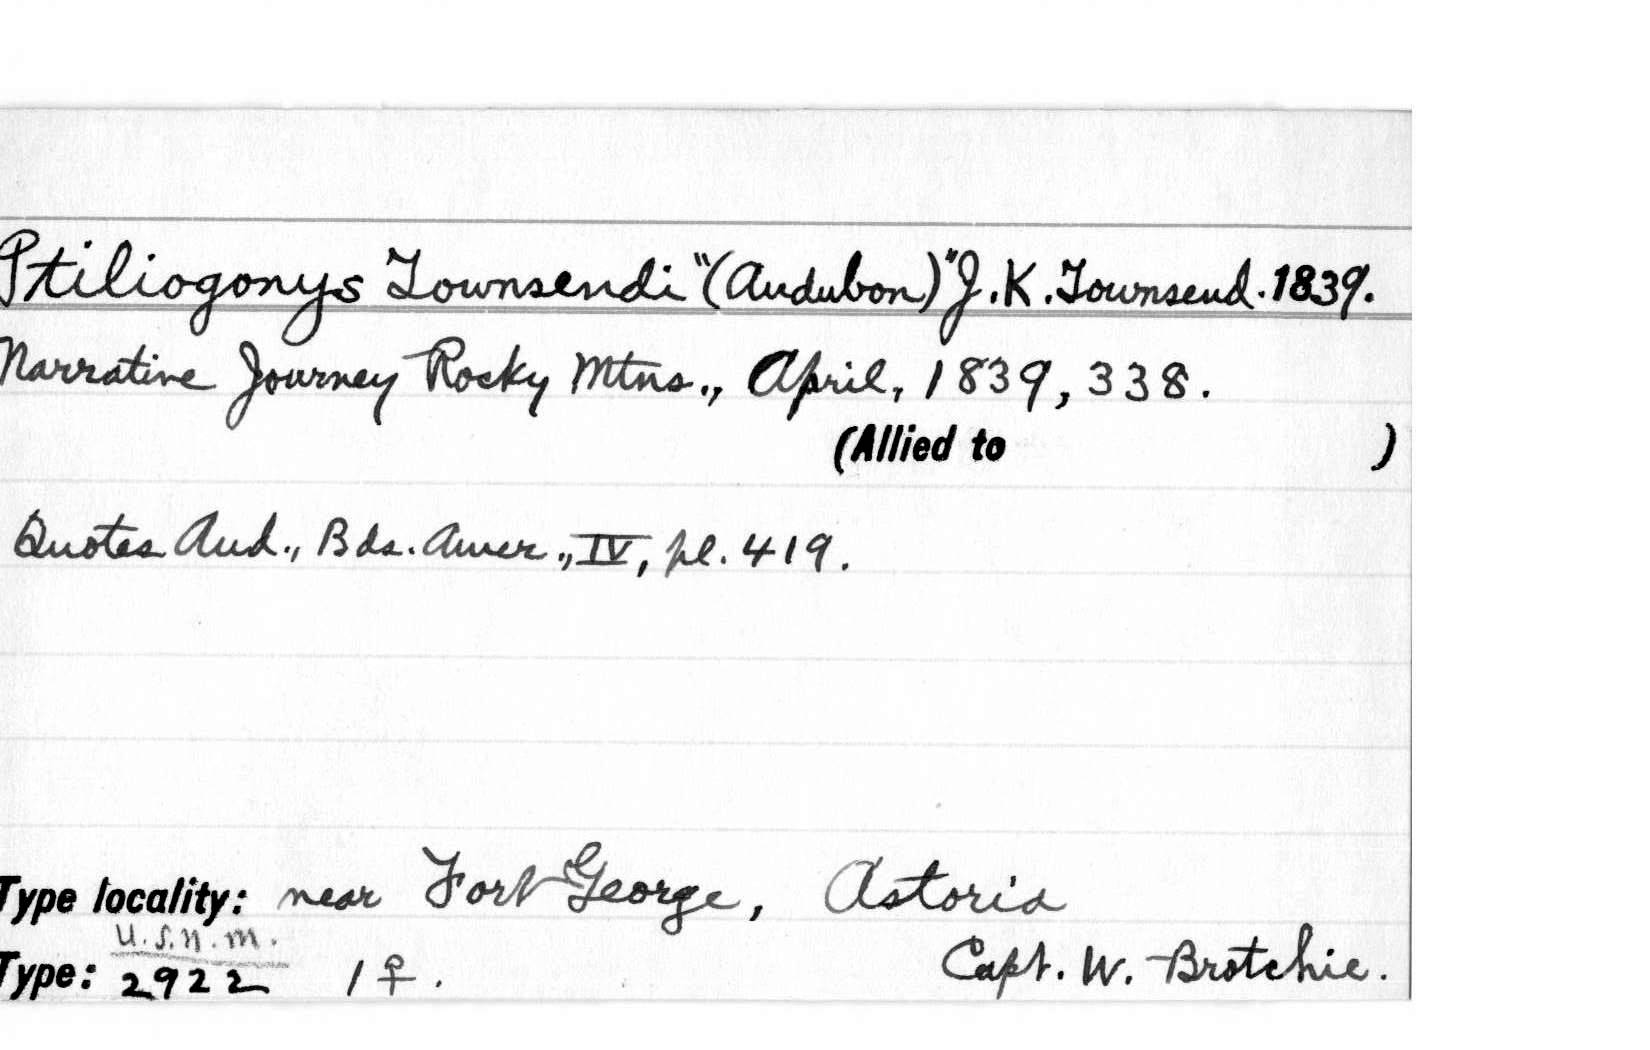 Ptiliogonys Townsendi "(Audubon)" J. K. Townsend. 1839.
Narrative Journey Rocky Mtns., April, 1839, 338.
(Allied to )
Quotes Aud., Bds. Amer., IV, pl. 419.
Type locality: near Fort George, Astoria
U.S.N.M.
Type: 2922 1 ♀. Capt. W. Brotchie.